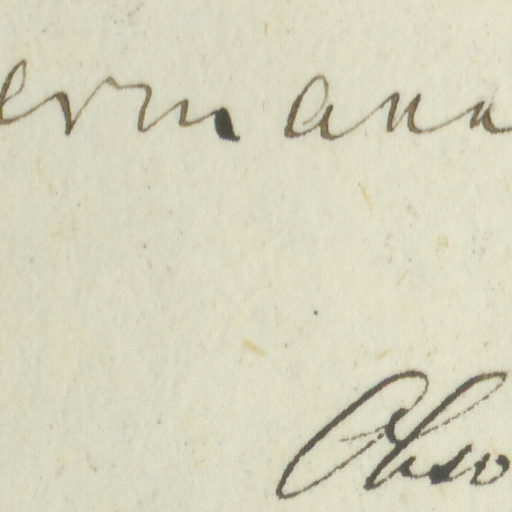 ermann
Obso